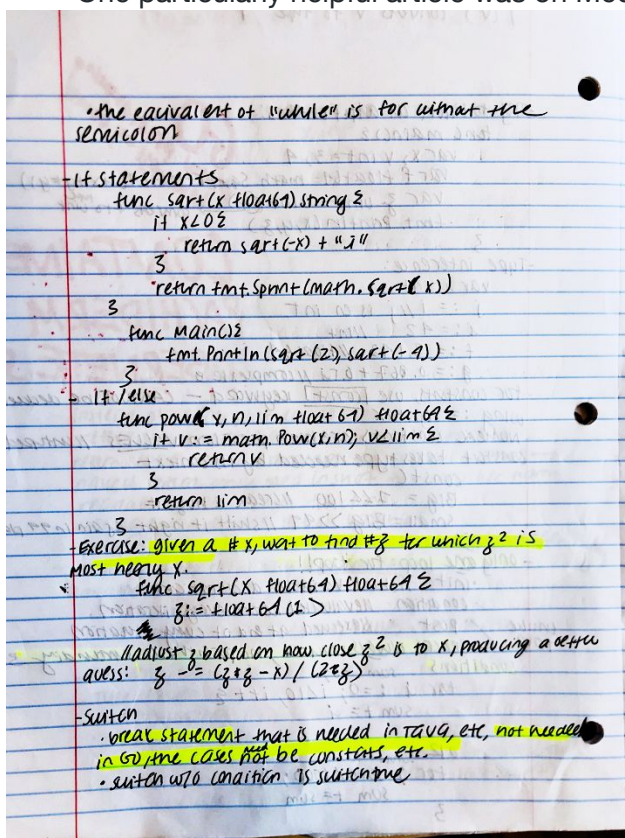 One particularly helpful article was on
• the equivalent of "while" is for without the
semicolon
- If statements
func sqrt(x float64) string {
if x<0 {
return sqrt(-x) + "i"
}
return fmt.Sprint(math.Sqrt(x))
}
func main() {
fmt.Println(sqrt(2), sqrt(-4))
}
- If/else
func pow(x, n, lim float64) float64 {
if v := math.Pow(x,n); v<lim {
return v
}
return lim
}
- Exercise: given a # x, wat to find # z for which z² is
most nearly x.
func sqrt(x float64) float64 {
z := float64(1)
//adjust z based on how close z² is to x, producing a better
guess: z -= (z*z - x) / (2*z)
- switch
• break statement that is needed in Java, etc, not needed
in GO, the cases not be constats, etc.
• switch w/o condition is switch true